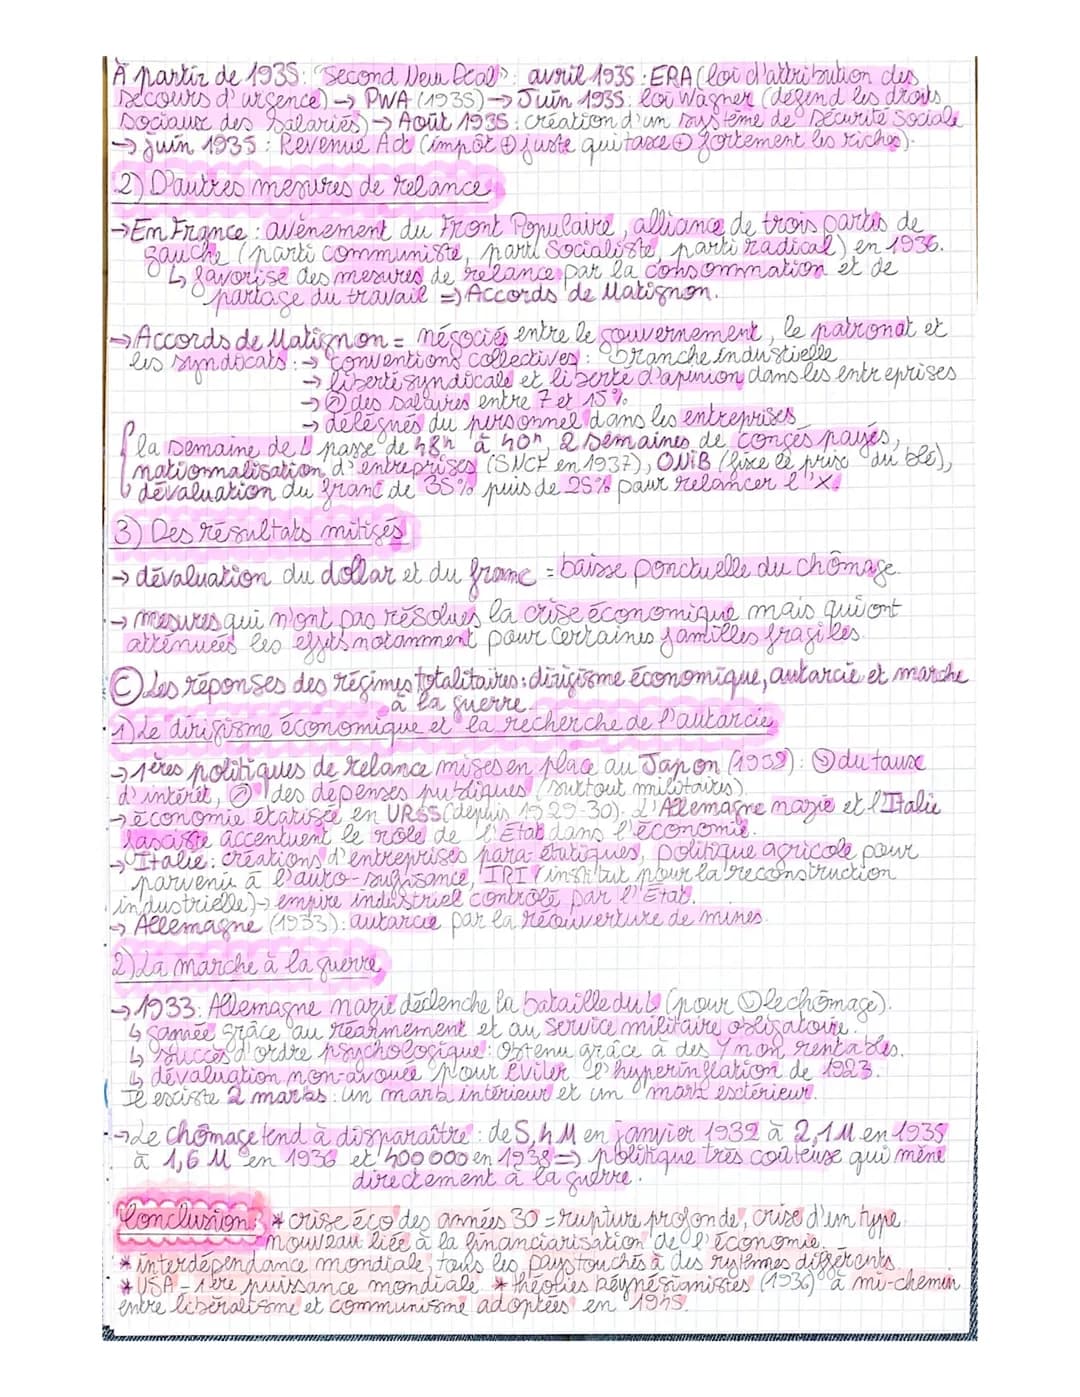 À partir de 1935: "Second New Deal": avril 1935: ERA (loi d'attribution des
secours d'urgence) → PWA (1935) → Juin 1935: loi Wagner (défend les droits
sociaux des salariés) → Août 1935: création d'un système de Sécurité Sociale
→ juin 1935: Revenue Act (impôt ⊕ juste qui taxe ⊕ fortement les riches).
2) D'autres mesures de relance
→ En France: avènement du Front Populaire, alliance de trois partis de
gauche (parti communiste, parti Socialiste, parti radical) en 1936.
↳ favorise des mesures de relance par la consommation et de
partage du travail ⇒ Accords de Matignon.
→ Accords de Matignon = négociés entre le gouvernement, le patronat et
les syndicats: → conventions collectives: branche industielle
→ liberté syndicale et liberté d'opinion dans les entreprises
→ des salaires entre 7 et 15%
→ délégués du personnel dans les entreprises
la semaine de passe de 48h à 40h, 2 semaines de congés payés,
nationnalisation d'entreprises (SNCF en 1937), ONIB (fixe le prix du blé),
dévaluation du franc de 35% puis de 25% pour relancer l'X.
3) Des résultats mitigés
→ dévaluation du dollar et du franc = baisse ponctuelle du chômage.
→ mesures qui n'ont pas résolues la crise économique mais qui ont
atténuées les effets notamment pour certaines familles fragiles.
Ⓒ Les réponses des régimes totalitaires: dirigisme économique, autarcie et marche
à la guerre.
1) Le dirigisme économique et la recherche de l'autarcie
→ 1ères politiques de relance mises en place au Japon (1932): du taux
d'intérêt, des dépenses publiques (surtout militaires).
→ économie étatisée en URSS (depuis 1929-30). L'Allemagne nazie et l'Italie
fasciste accentuent le rôle de l'État dans l'économie.
→ Italie: créations d'entreprises para-étatiques, politique agricole pour
parvenir à l'auto-suffisance, IRI (institut pour la reconstruction
industrielle) → empire industriel contrôlé par l'État.
→ Allemagne (1933): autarcie par la réouverture de mines.
2) La marche à la guerre
→ 1933: Allemagne nazie déclenche la bataille du (pour le chômage).
↳ gagnée grâce au réarmement et au service militaire obligatoire.
↳ succès d'ordre psychologique: obtenu grâce à des Y non rentables.
↳ dévaluation non-avouée pour éviter l'hyperinflation de 1923.
Il existe 2 marks: un mark intérieur et un mark extérieur.
→ Le chômage tend à disparaître: de 5,4 M en janvier 1932 à 2,1 M en 1935
à 1,6 M en 1936 et 400 000 en 1938 ⇒ politique très coûteuse qui mène
directement à la guerre.
Conclusion: * crise éco des années 30 = rupture profonde, crise d'un type
nouveau liée à la financiarisation de l'économie.
* interdépendance mondiale, tous les pays touchés à des rythmes différents
* USA = 1ère puissance mondiale * théories keynésianistes (1936) à mi-chemin
entre libéralisme et communisme adoptées en 1945.